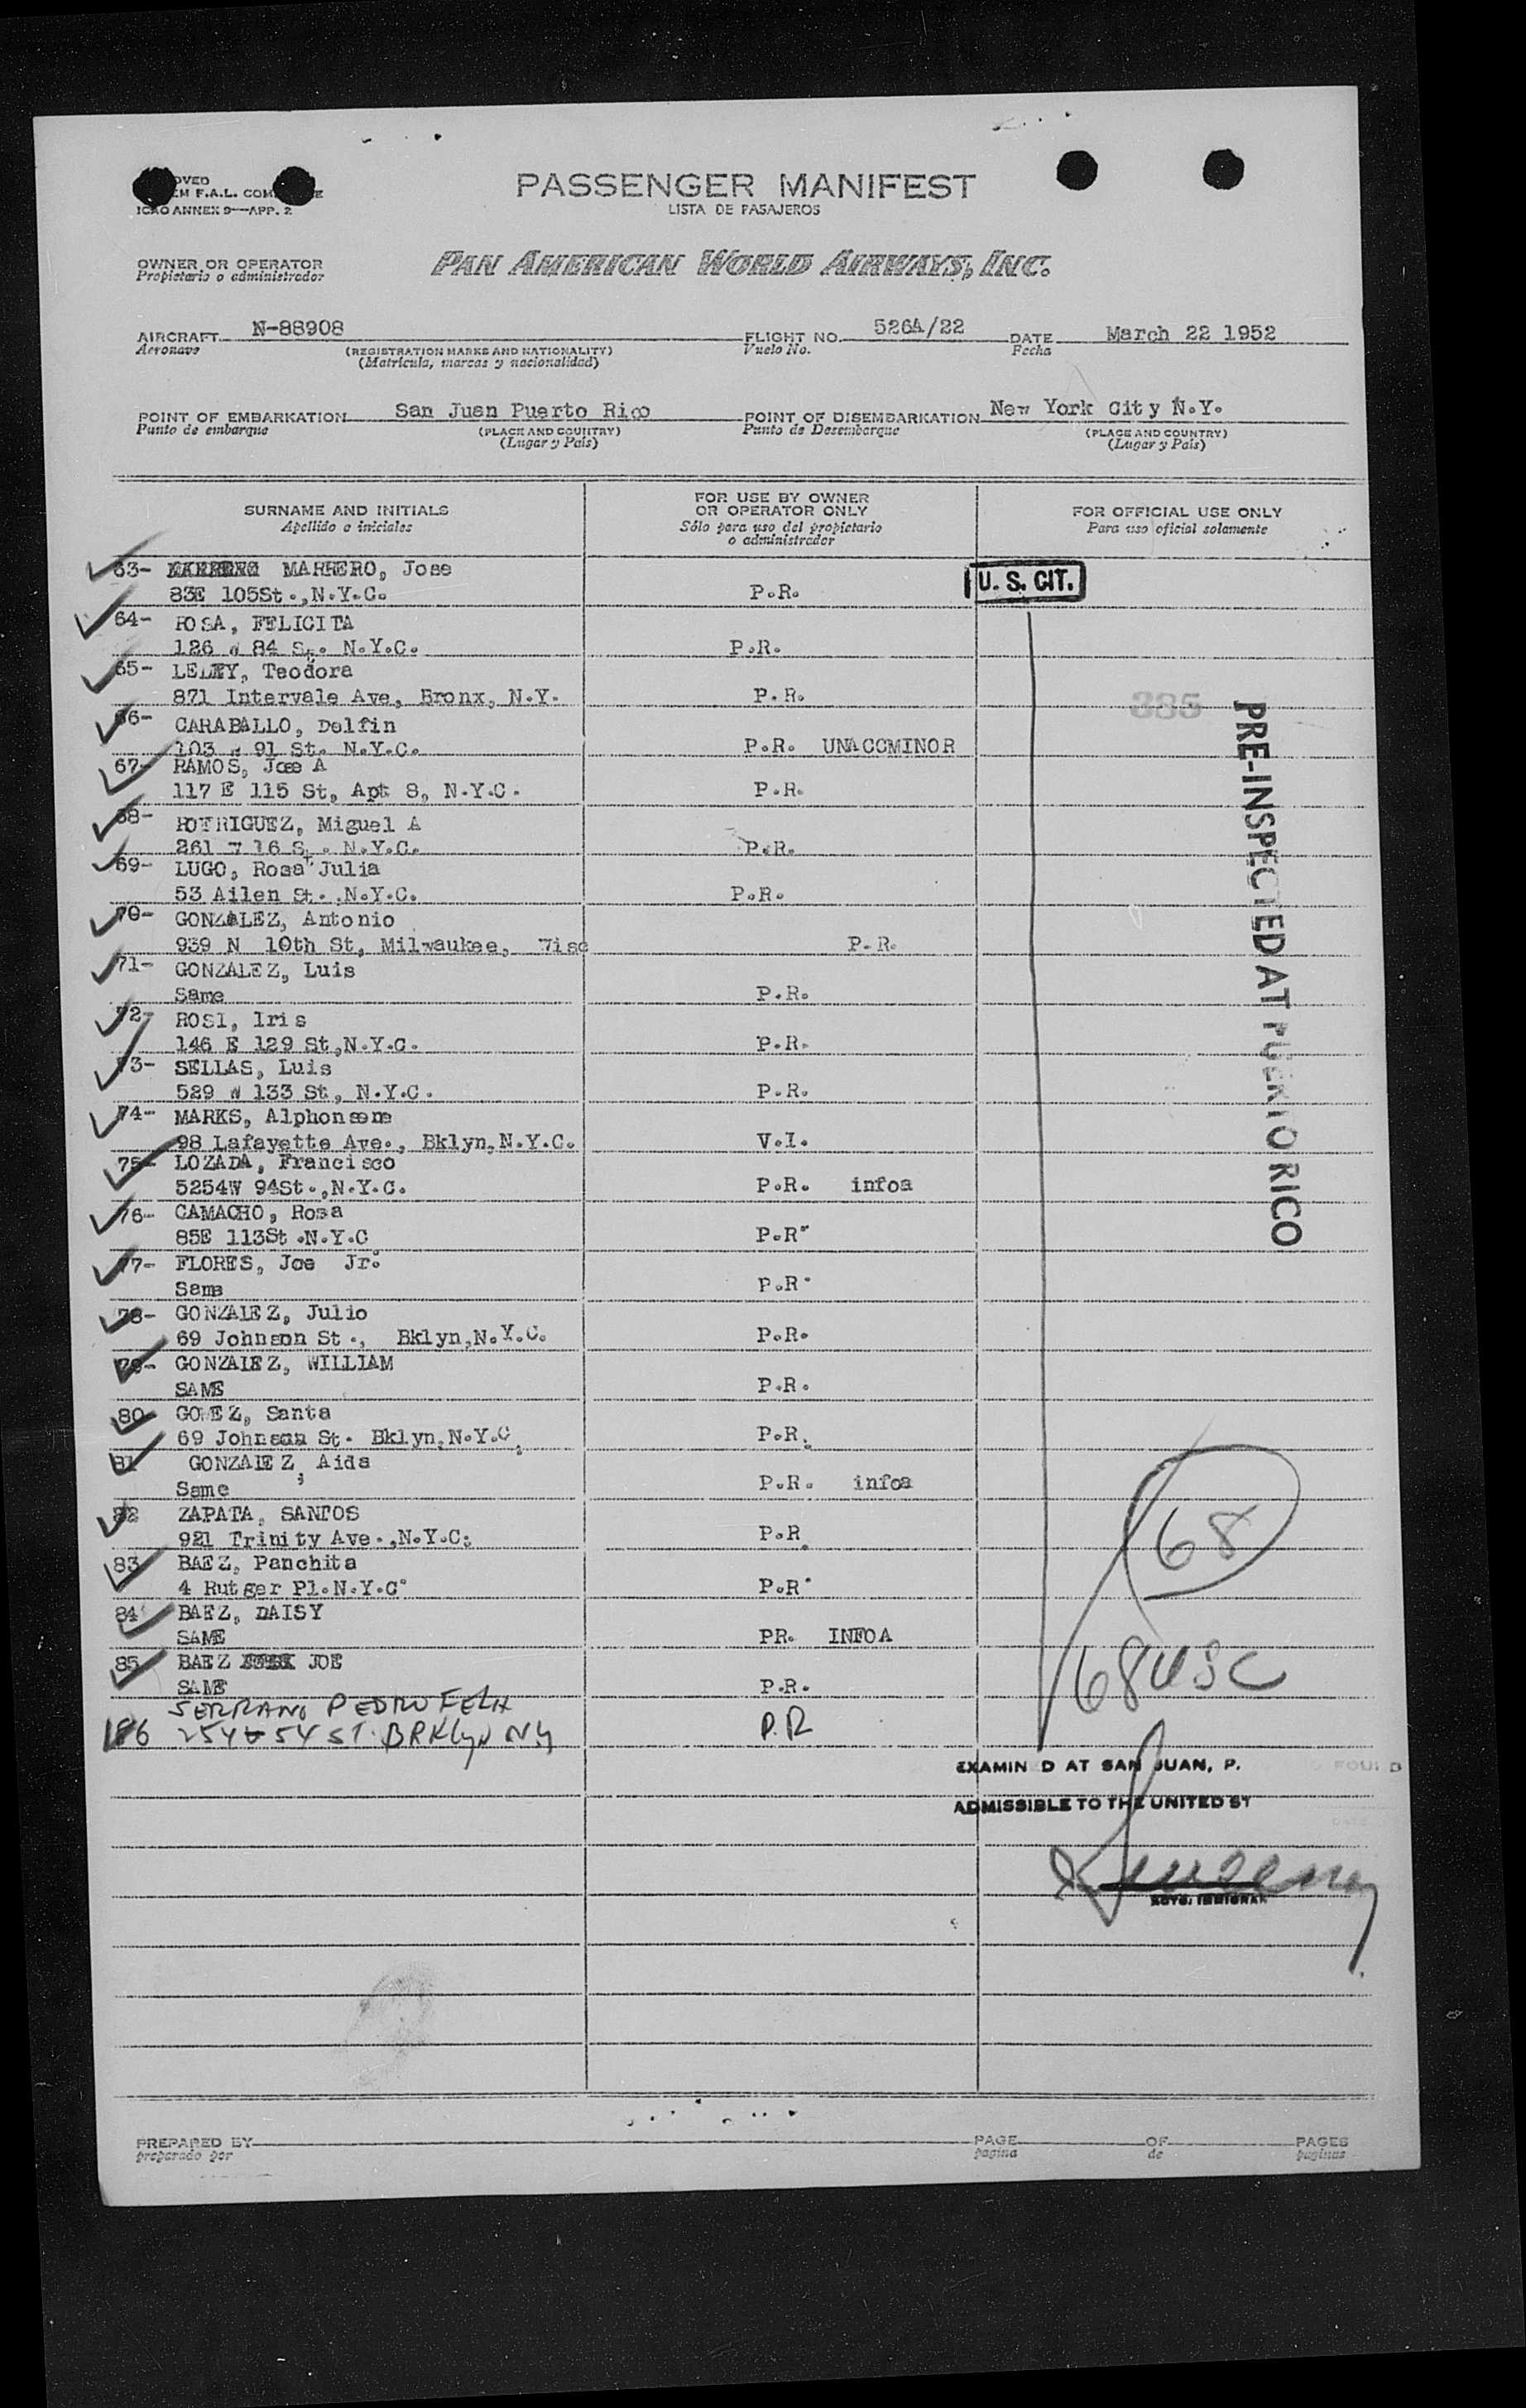 OVED
EM F.A.L. COM E
ICAO ANNEX 9—APP. 2
PASSENGER MANIFEST
LISTA DE PASAJEROS
OWNER OR OPERATOR
Propietario o administrador
PAN AMERICAN WORLD AIRWAYS, INC.
AIRCRAFT N-88908 FLIGHT NO. 526A/22 DATE March 22 1952
Aeronave (REGISTRATION MARKS AND NATIONALITY) Vuelo No. Fecha
(Matrícula, marcas y nacionalidad)
POINT OF EMBARKATION San Juan Puerto Rico POINT OF DISEMBARKATION New York City N.Y.
Punto de embarque (PLACE AND COUNTRY) Punto de Desembarque (PLACE AND COUNTRY)
(Lugar y País) (Lugar y País)
SURNAME AND INITIALS FOR USE BY OWNER OR OPERATOR ONLY FOR OFFICIAL USE ONLY
Apellido e iniciales Sólo para uso del propietario o administrador Para uso oficial solamente
63- MARRERO, Jose
83E 105St.,N.Y.C. P.R. U. S. CIT.
64- ROSA, FELICITA
126 W 84 St. N.Y.C. P.R.
65- Teodora
871 Intervale Ave, Bronx, N.Y. P.R.
385
66- CARABALLO, Delfin
103 W 91 St. N.Y.C. P.R. UNACCMINOR
67- RAMOS, Jose A
117 E 115 St, Apt 8, N.Y.C. P.R.
68- RODRIGUEZ, Miguel A
261 W 16 St. N.Y.C. P.R.
69- LUGO, Rosa Julia
53 Allen St. ,N.Y.C. P.R.
70- GONZALEZ, Antonio
939 N 10th St, Milwaukee, Wisc P.R.
71- GONZALEZ, Luis
Same P.R.
72- ROSI, Iris
146 E 129 St,N.Y.C. P.R.
73- SELLAS, Luis
529 W 133 St, N.Y.C. P.R.
74- MARKS, Alphonsene
98 Lafayette Ave., Bklyn,N.Y.C. V.I.
75- LOZADA, Francisco
5254W 94St.,N.Y.C. P.R. infoa
76- CAMACHO, Rosa
85E 113St .N.Y.C P.R.
77- FLORES, Joe Jr.
Same P.R.
78- GONZALEZ, Julio
69 Johnson St., Bklyn,N.Y.C. P.R.
79- GONZALEZ, WILLIAM
SAME P.R.
80- GOMEZ, Santa
69 Johnson St. Bklyn,N.Y.C. P.R.
81 GONZALEZ, Aida
Same P.R. infoa
82 ZAPATA, SANTOS
921 Trinity Ave.,N.Y.C. P.R.
83 BAEZ, Panchita
4 Rutger Pl.N.Y.C. P.R.
84 BAEZ, DAISY
SAME PR. INFOA
85 BAEZ JOE
SAME P.R.
SERRANO PEDRO FELIX
86 254 54 ST. BRKLYN NY P.R
PRE-INSPECTED AT PUERTO RICO
68
68 USC
EXAMIN D AT SAN JUAN, P. FOU D
ADMISSIBLE TO THE UNITED ST
PREPARED BY PAGE OF PAGES
preparado por pagina de paginas